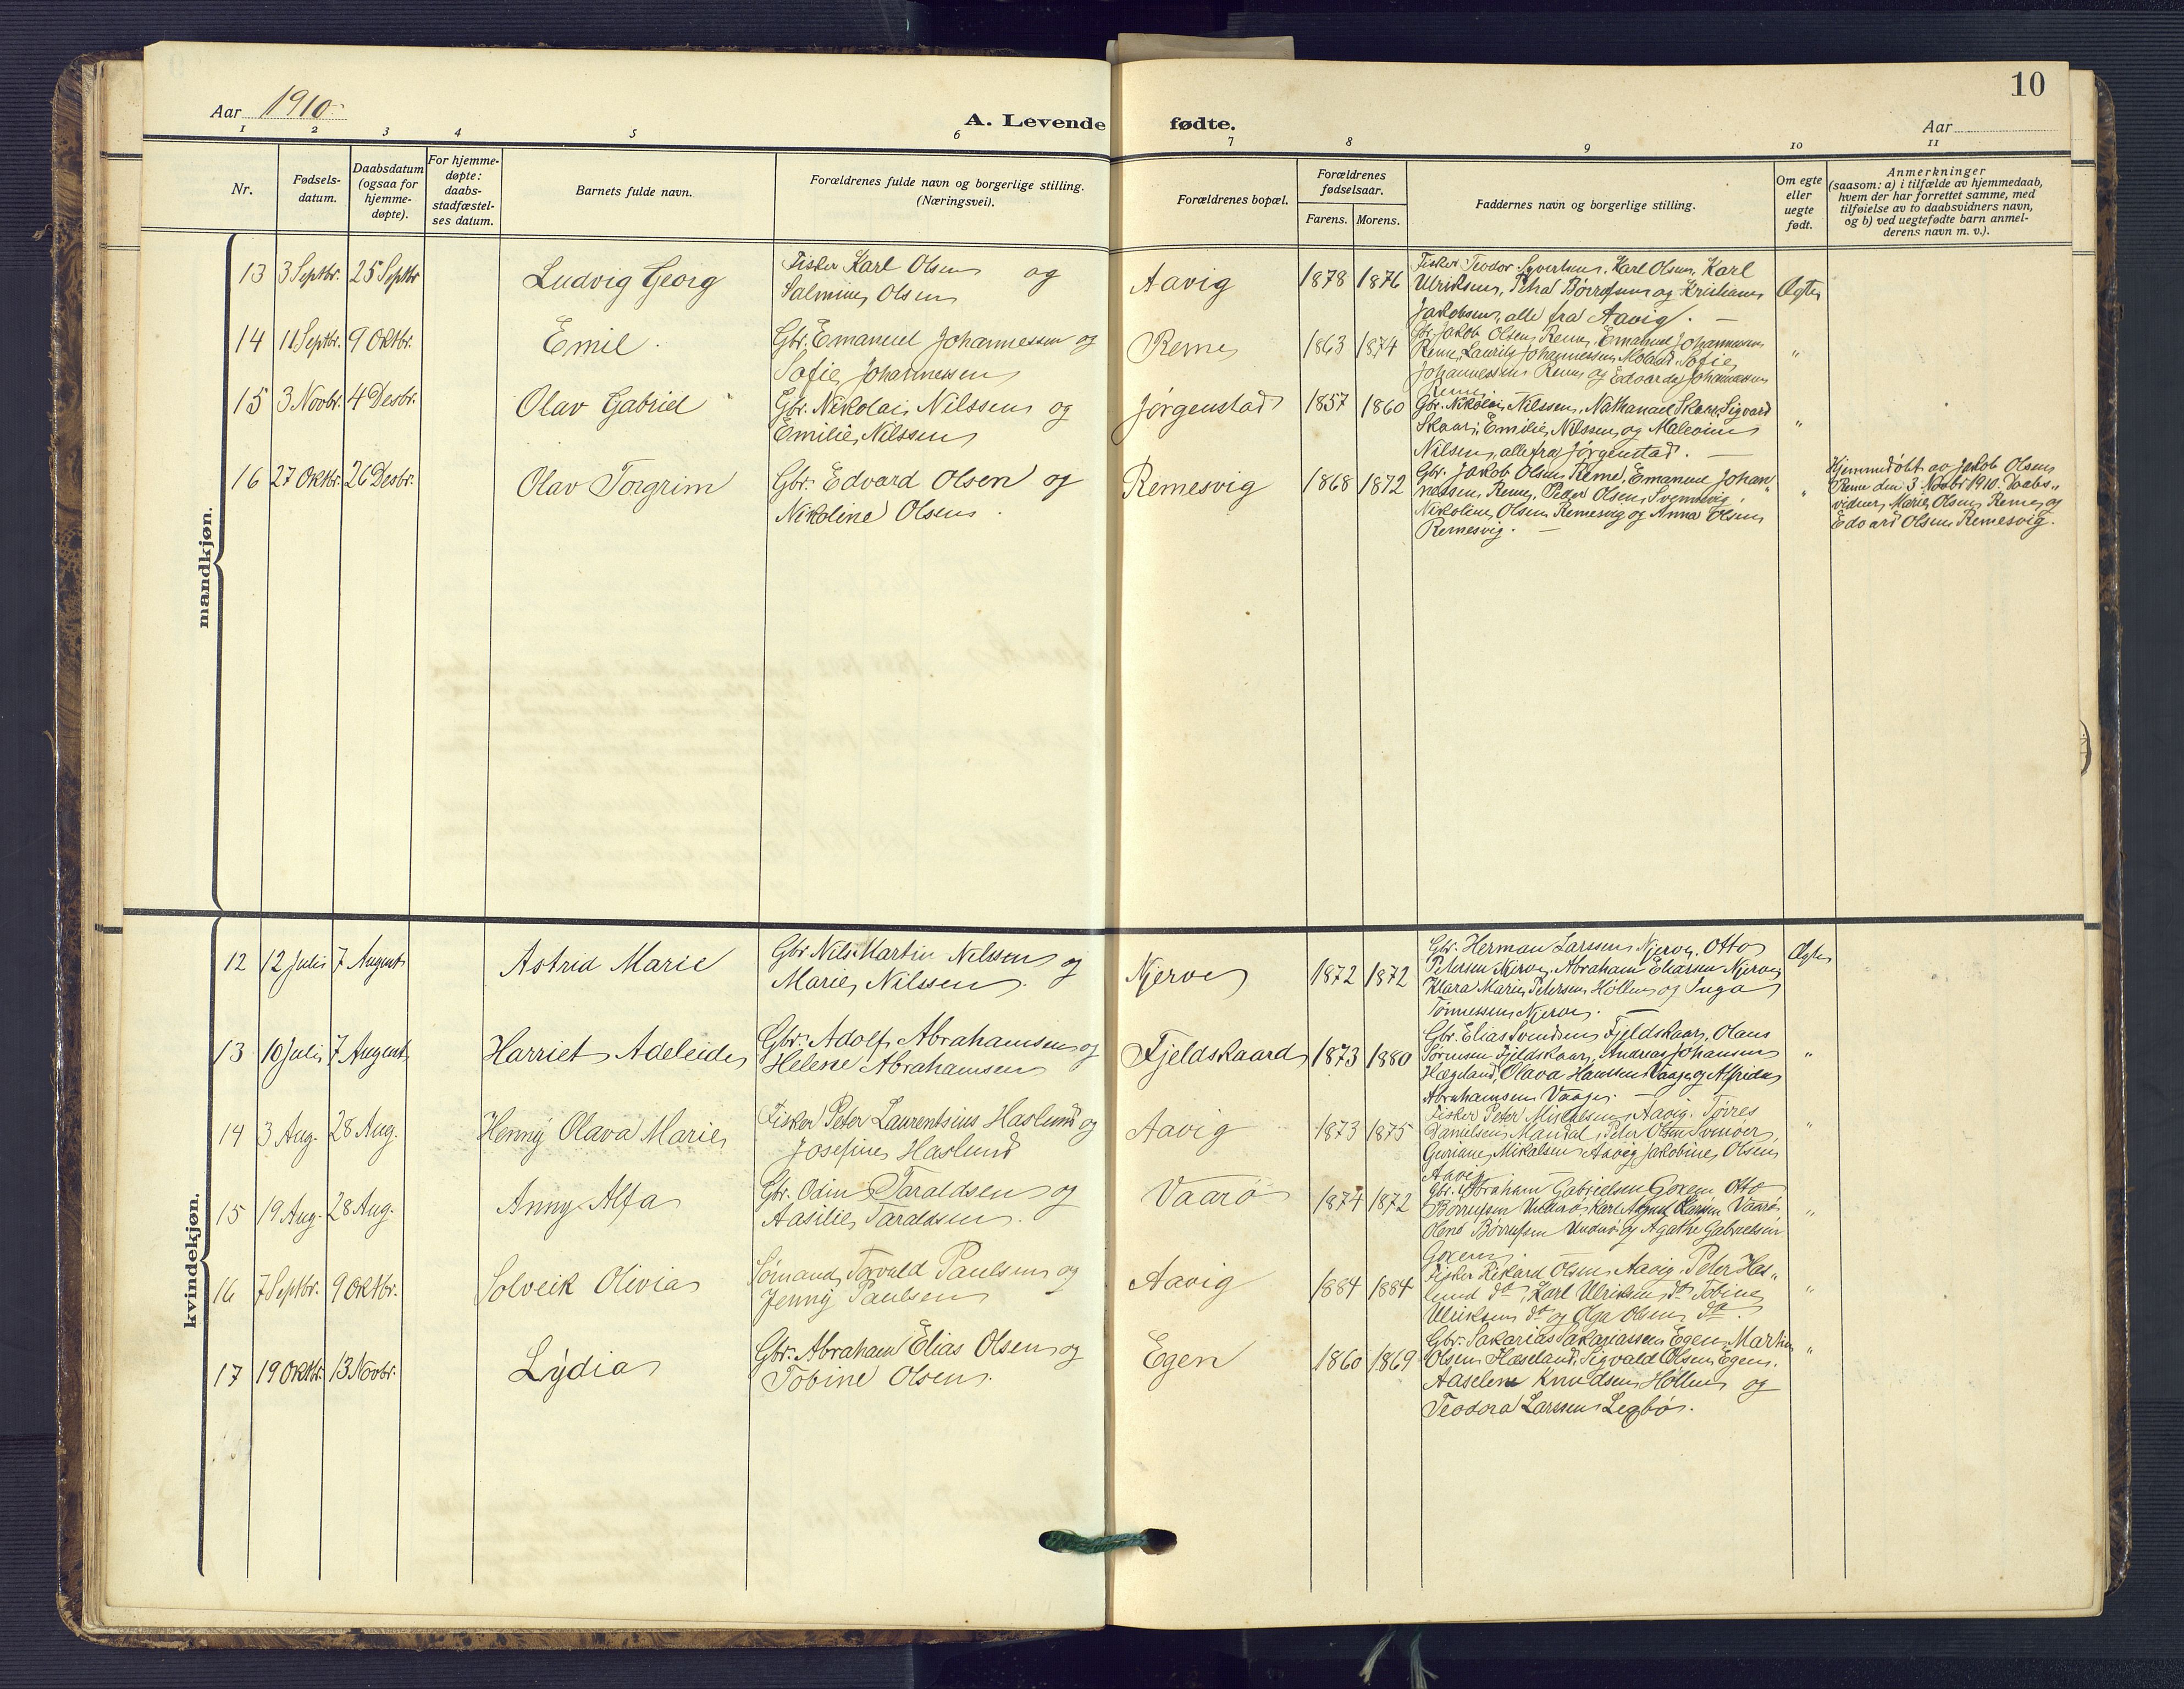 10
Aar 1910.
A. Levende fødte.
Aar
1 2 3 4 5 6 7 8 9 10 11
Nr.
Fødsels-
datum.
Daabsdatum
(ogsaa for
hjemme-
døpte).
For hjemme-
døpte:
daabs-
stadfæstel-
ses datum.
Barnets fulde navn.
Forældrenes fulde navn og borgerlige stilling.
(Næringsvei).
Forældrenes bopæl.
Forældrenes
fødselsaar.
Farens. Morens.
Faddernes navn og borgerlige stilling.
Om egte
eller
uegte
født.
Anmerkninger
(saasom: a) i tilfælde av hjemmedaab,
hvem der har forrettet samme, med
tilføielse av to daabsvidners navn,
og b) ved uegtefødte barn anmel-
derens navn m. v.).
mandkjøn.
13 3 Septbr. 25 Septbr Ludvig Georg
Fisker Karl Olsen og
Salmine Olsen
Aavig 1878 1876
Fisker Teodor Syvertsen, Karl Olsen, Karl
Ulriksen, Petra Børresen og Kristiane
Jakobsen, alle fra Aavig. —
Ægte
14 11 Septbr. 9 Oktbr. Emil.
Gbr. Emanuel Johannessen og
Sofie Johannessen
Reme 1863 1874
Gbr. Jakob Olsen Reme, Emanuel Johannessen
Reme, Laurits Johannessen Moland, Sofie
Johannessen Reme og Edvarda Johannessen
Reme.
"
15 3 Novbr. 4 Desbr. Olav Gabriel
Gbr. Nikolai Nilssen og
Emilie Nilssen
Jørgenstad 1857 1860
Gbr. Nikolai Nilssen, Nathanael Skaar, Sigvard
Skaar, Emilie Nilssen og Malvine
Nilsen, alle fra Jørgenstad. —
"
16 27 Oktbr. 26 Desbr. Olav Torgrim
Gbr. Edvard Olsen og
Nikoline Olsen.
Remesvig 1868 1872
Gbr. Jakob Olsen Reme, Emanuel Johan"
nessen Reme, Peder Olsen Svennevig,
Nikoline Olsen Remesvig og Anna Olsen
Remesvig. —
"
Hjemmedøbt av Jakob Olsen
Reme den 3 Novbr 1910. Daabs"
vidner, Marie Olsen Reme og
Edvard Olsen Remesvig.
kvindekjøn.
12 12 Juli 7 August Astrid Marie
Gbr Nils Martin Nilssen og
Marie Nilssen.
Njerve 1872 1872
Gbr. Herman Larssen Njerve, Otto
Petersen Njerve, Abraham Eliassen Njerve,
Klara Marie Petersen Høllen og Inga
Tønnessen Njerve. —
Ægte
13 10 Juli 7 August Harriet Adeleide
Gbr. Adolf Abrahamsen og
Helene Abrahamsen
Fjeldskaard 1873 1880
Gbr. Elias Svendsen Fjeldskaar, Olaus
Sørensen Fjeldskaar, Andreas Johansen
Hægeland, Olava Hanssen Vaage og Alfrida
Abrahamsen Vaage. —
"
14 3 Aug. 28 Aug. Henny Olava Marie
Fisker Peter Laurentsius Haslund og
Josefine Haslund
Aavig 1873 1875
Fisker Peter Mikalsen Aavig, Tørres
Danielsen Mandal, Peter Olsen
Guriane Mikalsen Aavig Jakobine Olsen
Aavig
"
15 19 Aug. 28 Aug. Anny Alfa
Gbr. Odin Taraldsen og
Aasilie Taraldsen.
Vaarø 1874 1872
Gbr. Abraham Gabrielsen Goxem, Otto
Børresen Underø, Karl Vaarø,
Olene Børresen Underø og Agathe Gabrielsen
Goxem.
"
16 7 Septbr. 9 Oktbr. Solveik Olivia
Sømand Torvald Paulsen og
Jenny Paulsen
Aavig 1884 1884
Fisker Rikard Olsen Aavig, Peter Has"
lund do, Karl Ulriksen do, Tobine
Ulriksen do og Olga Olsen do.
"
17 19 Oktbr. 13 Novbr. Lydia
Gbr. Abraham Elias Olsen og
Tobine Olsen.
Egen 1860 1869
Gbr. Sakarias Sakariassen Egen, Martin
Olsen Hæseland, Sigvald Olsen Egen,
Aaselene Knudsen Høllen og
Teodora Larssen Legbø.
"